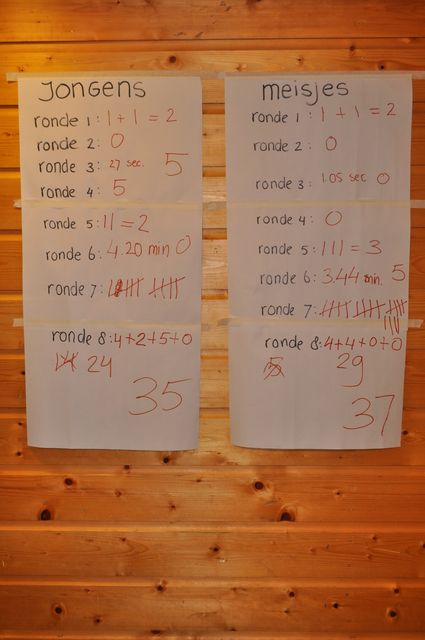 Jongens
ronde 1: 1 + 1 = 2
ronde 2: 0
ronde 3: 27 sec. 5
ronde 4: 5
ronde 5: 11 = 2
ronde 6: 4.20 min 0
ronde 7:
ronde 8: 4+2+5+0
24
35
meisjes
ronde 1: 1 + 1 = 2
ronde 2: 0
ronde 3: 1.05 sec 0
ronde 4: 0
ronde 5: 111 = 3
ronde 6: 3.44 min. 5
ronde 7:
ronde 8: 4+4+0+0
5 29
37